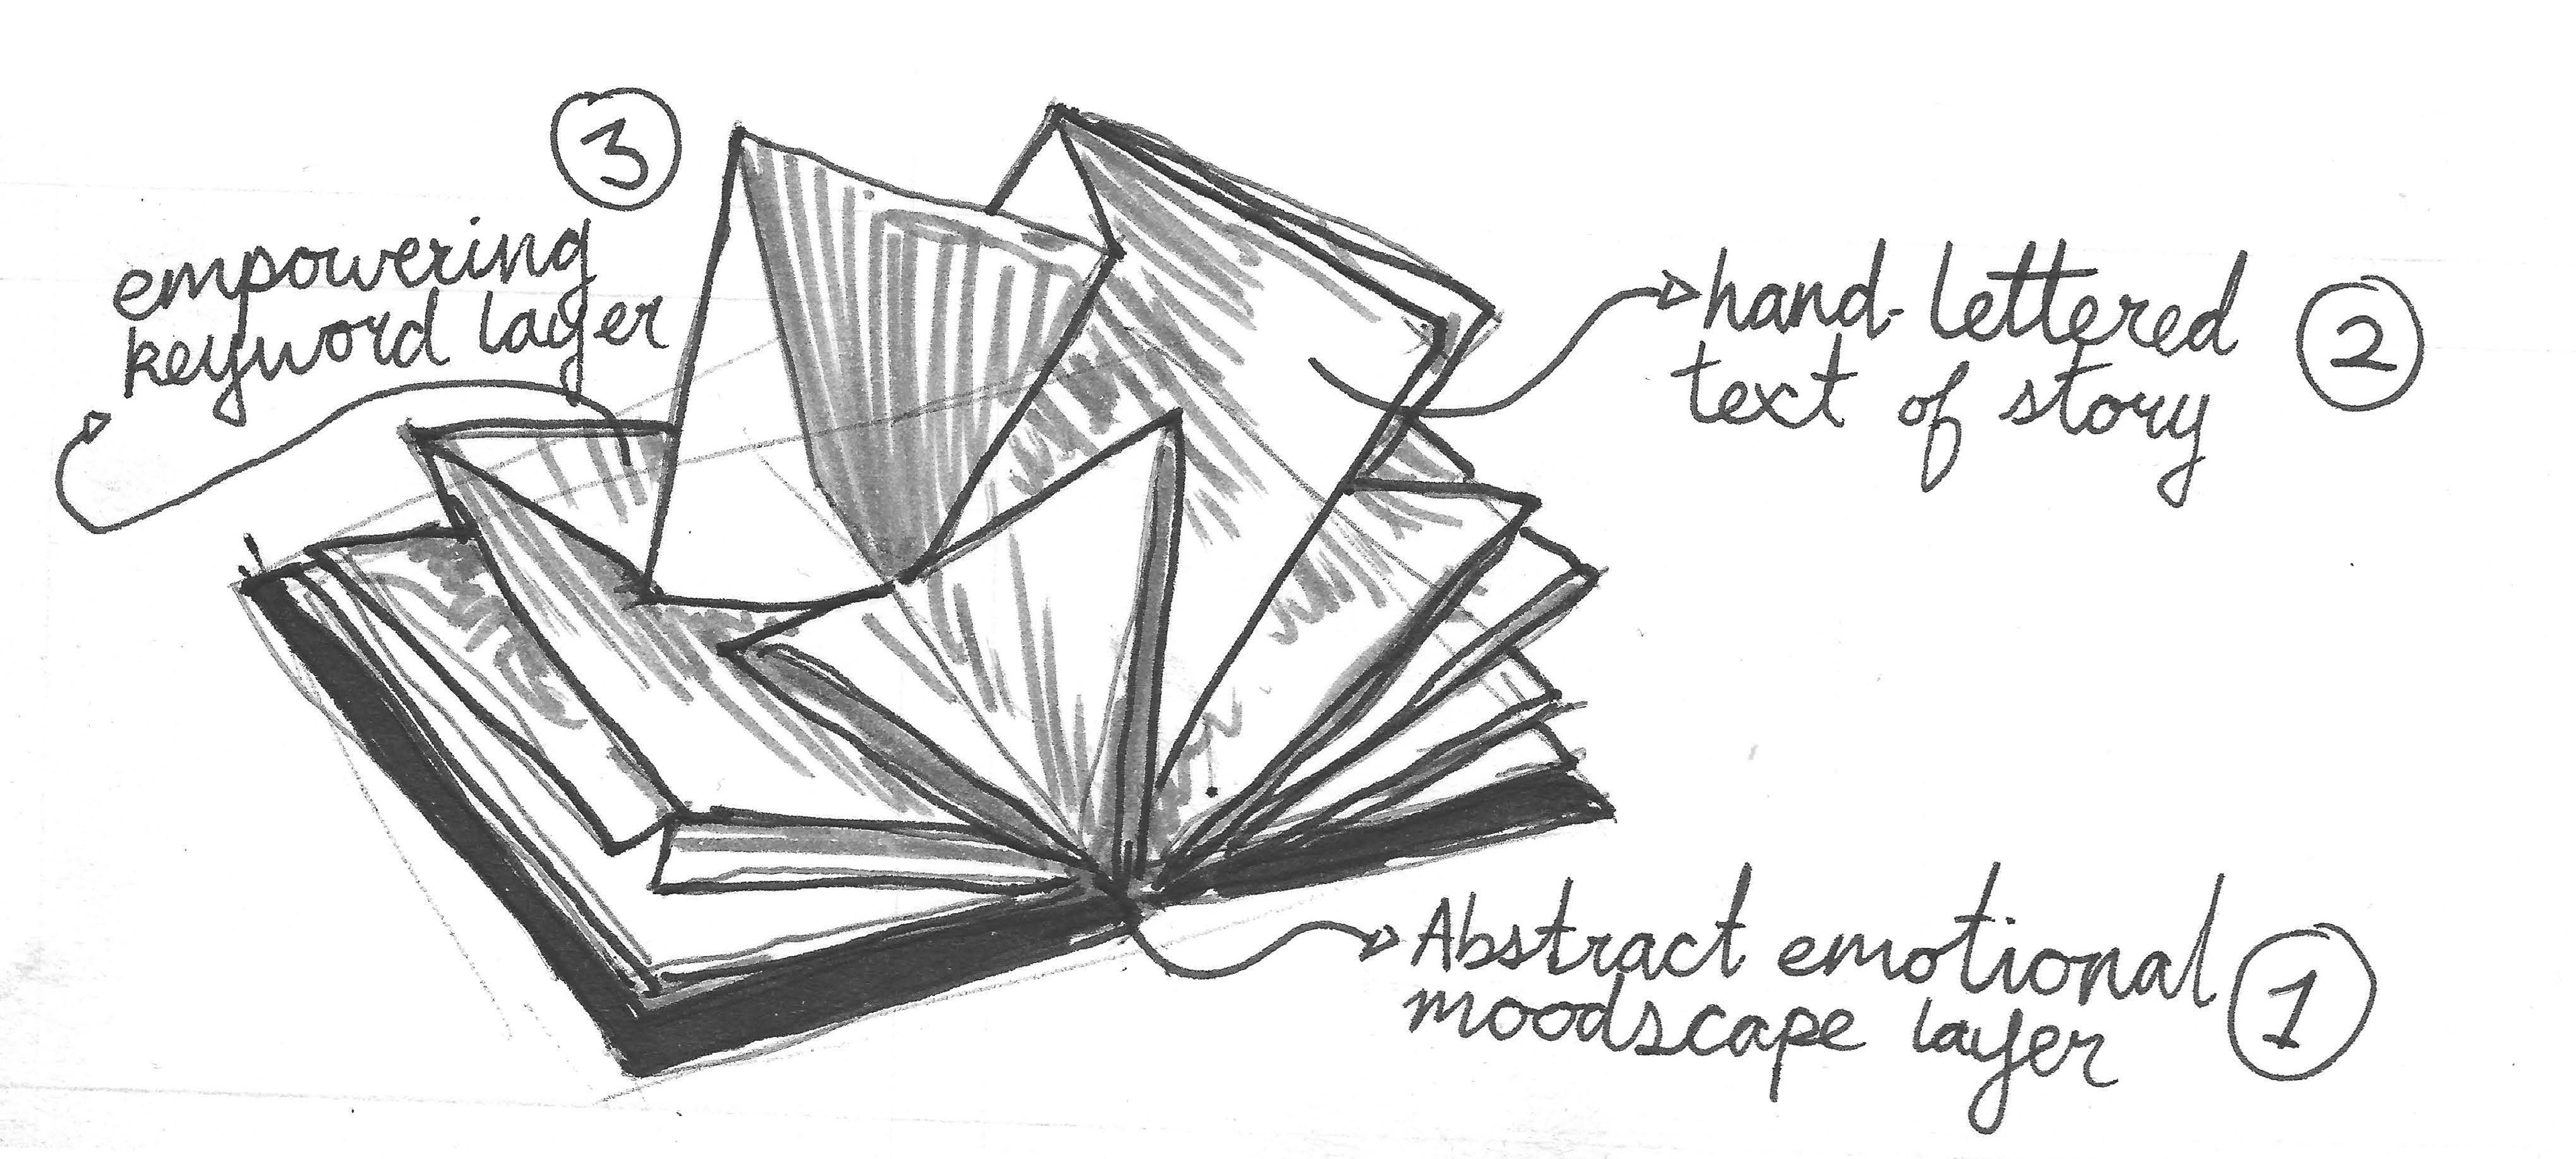 3
empowering
keyword layer
hand-lettered
text of story
2
Abstract emotional
moodscape layer
1